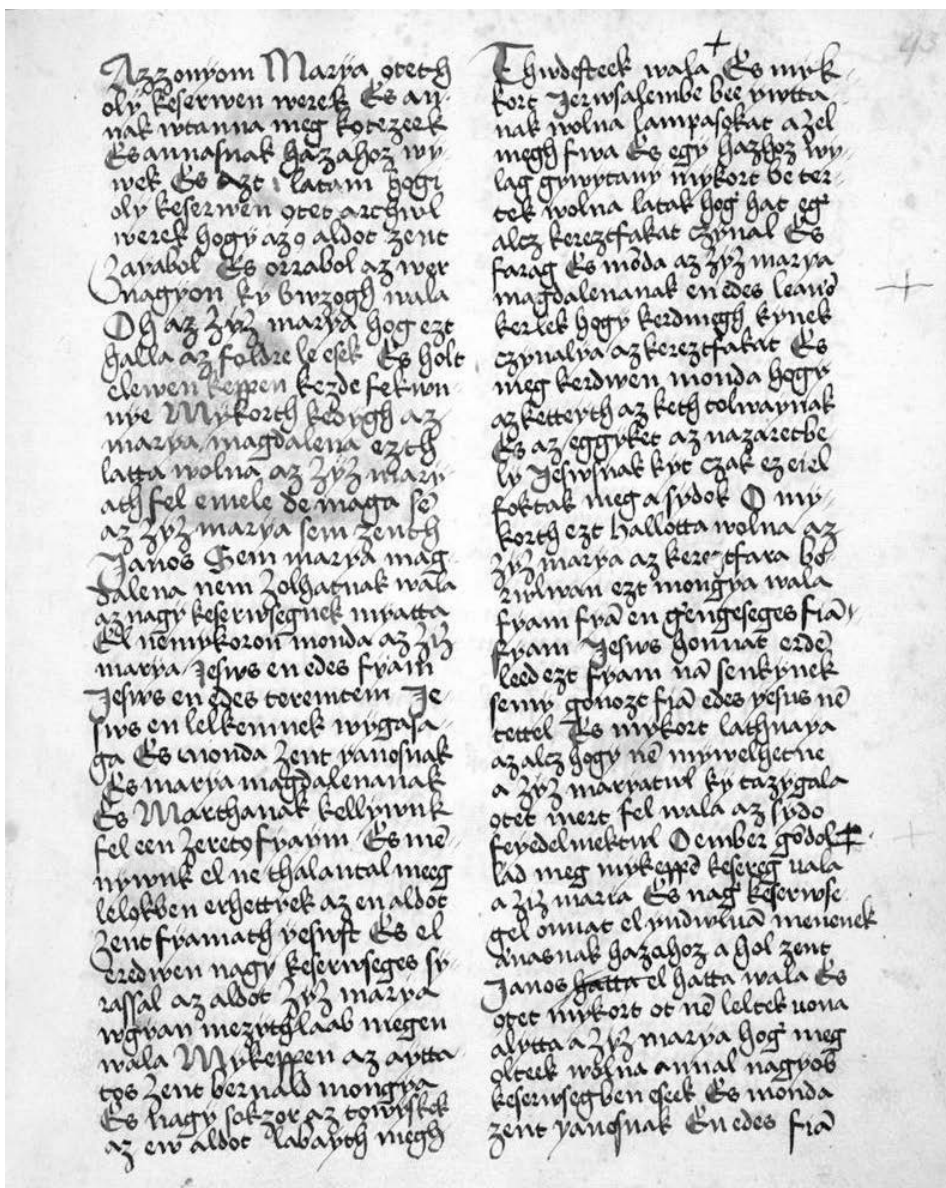 Azzonyom Marya øteth
oly keserwen werek Es an-
nak wtanna meg køtøzeek
Es annasnak hazahoz wy-
wek Es Azt latam hogÿ
oly keserwen øtet archwl
werek hogy az ø aldot zent
Zayabol Es orrabol az wer
nagyon ky bwzogh wala
Oh az zÿz marya hog ezt
halla az føldre le esek Es holt
elewen keppen kezde fekwn-
nye Mykorth kedygh az
marya magdalena ezth
latta wolna az zÿz mary-
ath fel emele de maga sē
az zÿz marya sem zenth
Janos Sem marya mag-
dalena nem zolhatnak wala
az nagy keserwsegnek myatta
El nēmykoron monda az zÿz
marya Jesws en edes fyam
Jesws en edes teremtem Je-
sws en lelkemnek wygasa-
ga Es monda zent yanosnak
Es marya magdalenanak
Es Marthanak kellywnk
fel een zeretø fyaym Es mē-
nywnk el ne thalantal meeg
leløkben erhettyek az en aldot
zent fyamath yesust Es el
eredwen nagy keserwseges sy-
rassal az aldot zÿz marya
wgyan mezythlaab megen
wala Mykeppen az aytta-
tos zent bernald mongya
Es nagy sokzor az tøwyskek
az ew aldot labayth megh
Thwdesteek wala Es myk-
kort Jerwsalembe bee ywtta-
nak wolna lampasokat a zel
megh fwa Es egy hazhoz wy-
lag gywytany mykort be ter-
tek wolna latak hog hat eg
alcz kereztfakat czynal Es
farag Es mōda az zÿz marya
magdalenanak en edes leanō
kerlek hogy kerdmegh kynek
czynalya az kereztfakat Es
meg kerdwen monda hogy
az ketteyth az keth tolwaynak
Es az eggyket az nazaretbe-
ly Jeswsnak kyt czak ez eiel
foktak meg a sydok O my-
korth ezt hallotta wolna az
zÿz marya az kereztfara bo-
rwlwan ezt mongya wala
fyam fyā en gēngeseges fiā
fyam Jesws honnat erdē-
leed ezt fyam nā senkynek
semy gonozt fiā edes yesus nē
tettel Es mykort lathnaya
az alcz hogy nē mywelhetne
a zÿz maryatwl ky tazygala
øtet mert fel wala az sydo
feyedelmektwl O ember gōdol-
lad meg mykeppē kesereg vala
a zÿz maria Es nag keserwse-
gel onnat el yndwlwā menenek
Anasnak hazahoz a hol zent
Janos hatta el hatta wala Es
øtet mykort ot nē leltek vona
alytta a zÿz marya hog meg
ølteek wolna annal nagyob
keserwsegben eseek Es monda
zent yanosnak En edes fiā